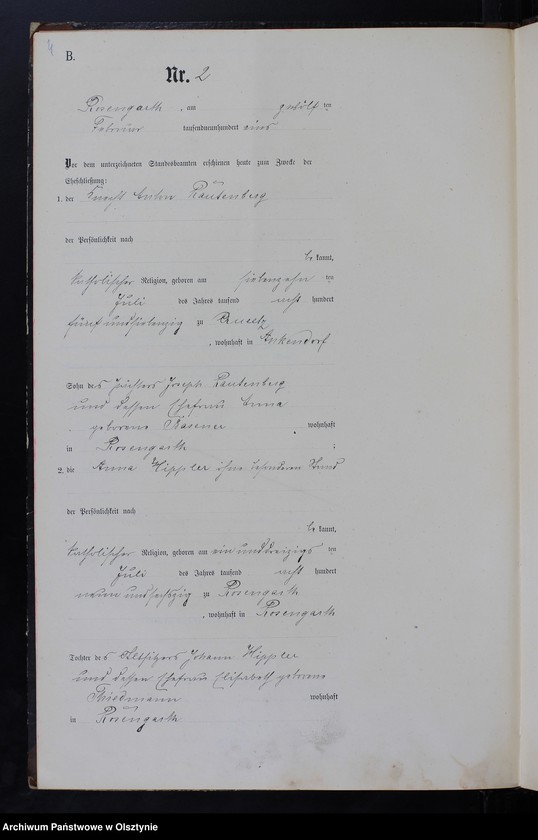 4
B.
Nr. 2
Rosengarth, am zwölften
Februar tausendneunhundert eins
Vor dem unterzeichneten Standesbeamten erschienen heute zum Zwecke der
Eheschließung:
1. der Knecht Anton Rautenberg
der Persönlichkeit nach
be kannt,
katholischer Religion, geboren am siebenzehn ten
Juli des Jahres tausend acht hundert
fünf und siebenzig zu
, wohnhaft in Ankendorf
Sohn des Joseph Rautenberg
und dessen Ehefrau Anna
geborene wohnhaft
in Rosengarth ;
2. die Anna Hippler ohne besonderen Stand
der Persönlichkeit nach
be kannt,
katholischer Religion, geboren am ein und dreizigs ten
Juli des Jahres tausend acht hundert
neun und sechszig zu Rosengarth
, wohnhaft in Rosengarth
Tochter des Altsitzers Johann Hippler
und dessen Ehefrau Elisabeth geborene
Thiedmann wohnhaft
in Rosengarth
Archiwum Państwowe w Olsztynie